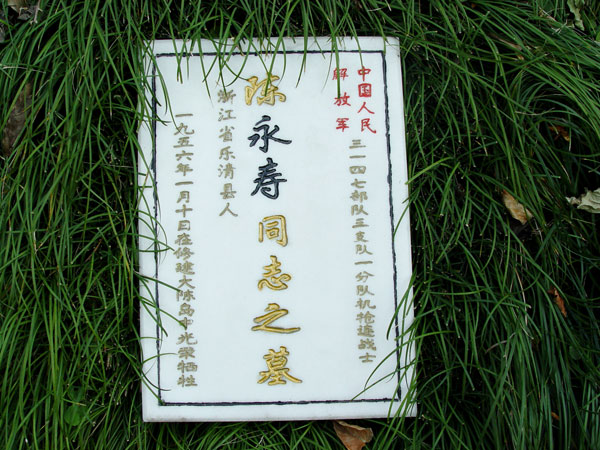 中国人民
解放军
三一四七部队五支队一分队机枪连战士
陈永寿同志之墓
浙江省乐清县人
一九五六年一月十日在修建大陈岛中光荣牺牲